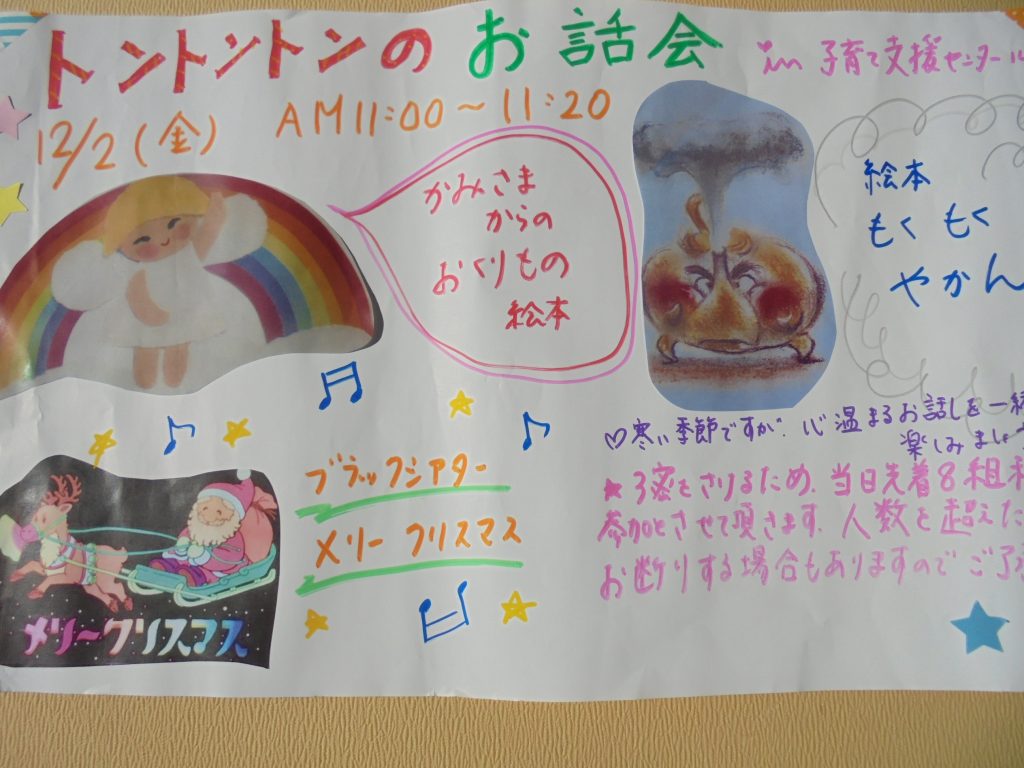 トントントンのお話会
in 子育て支援センター
12/2(金) AM11:00～11:20
かみさま
からの
おくりもの
絵本
絵本
もくもく
やかん
♡寒い季節ですが、心温まるお話しを一緒
楽しみましょ
★3密をさけるため、当日先着8組
参加とさせて頂きます。人数を超えた
お断りする場合もありますのでご了
ブラックシアター
メリークリスマス
メリークリスマス